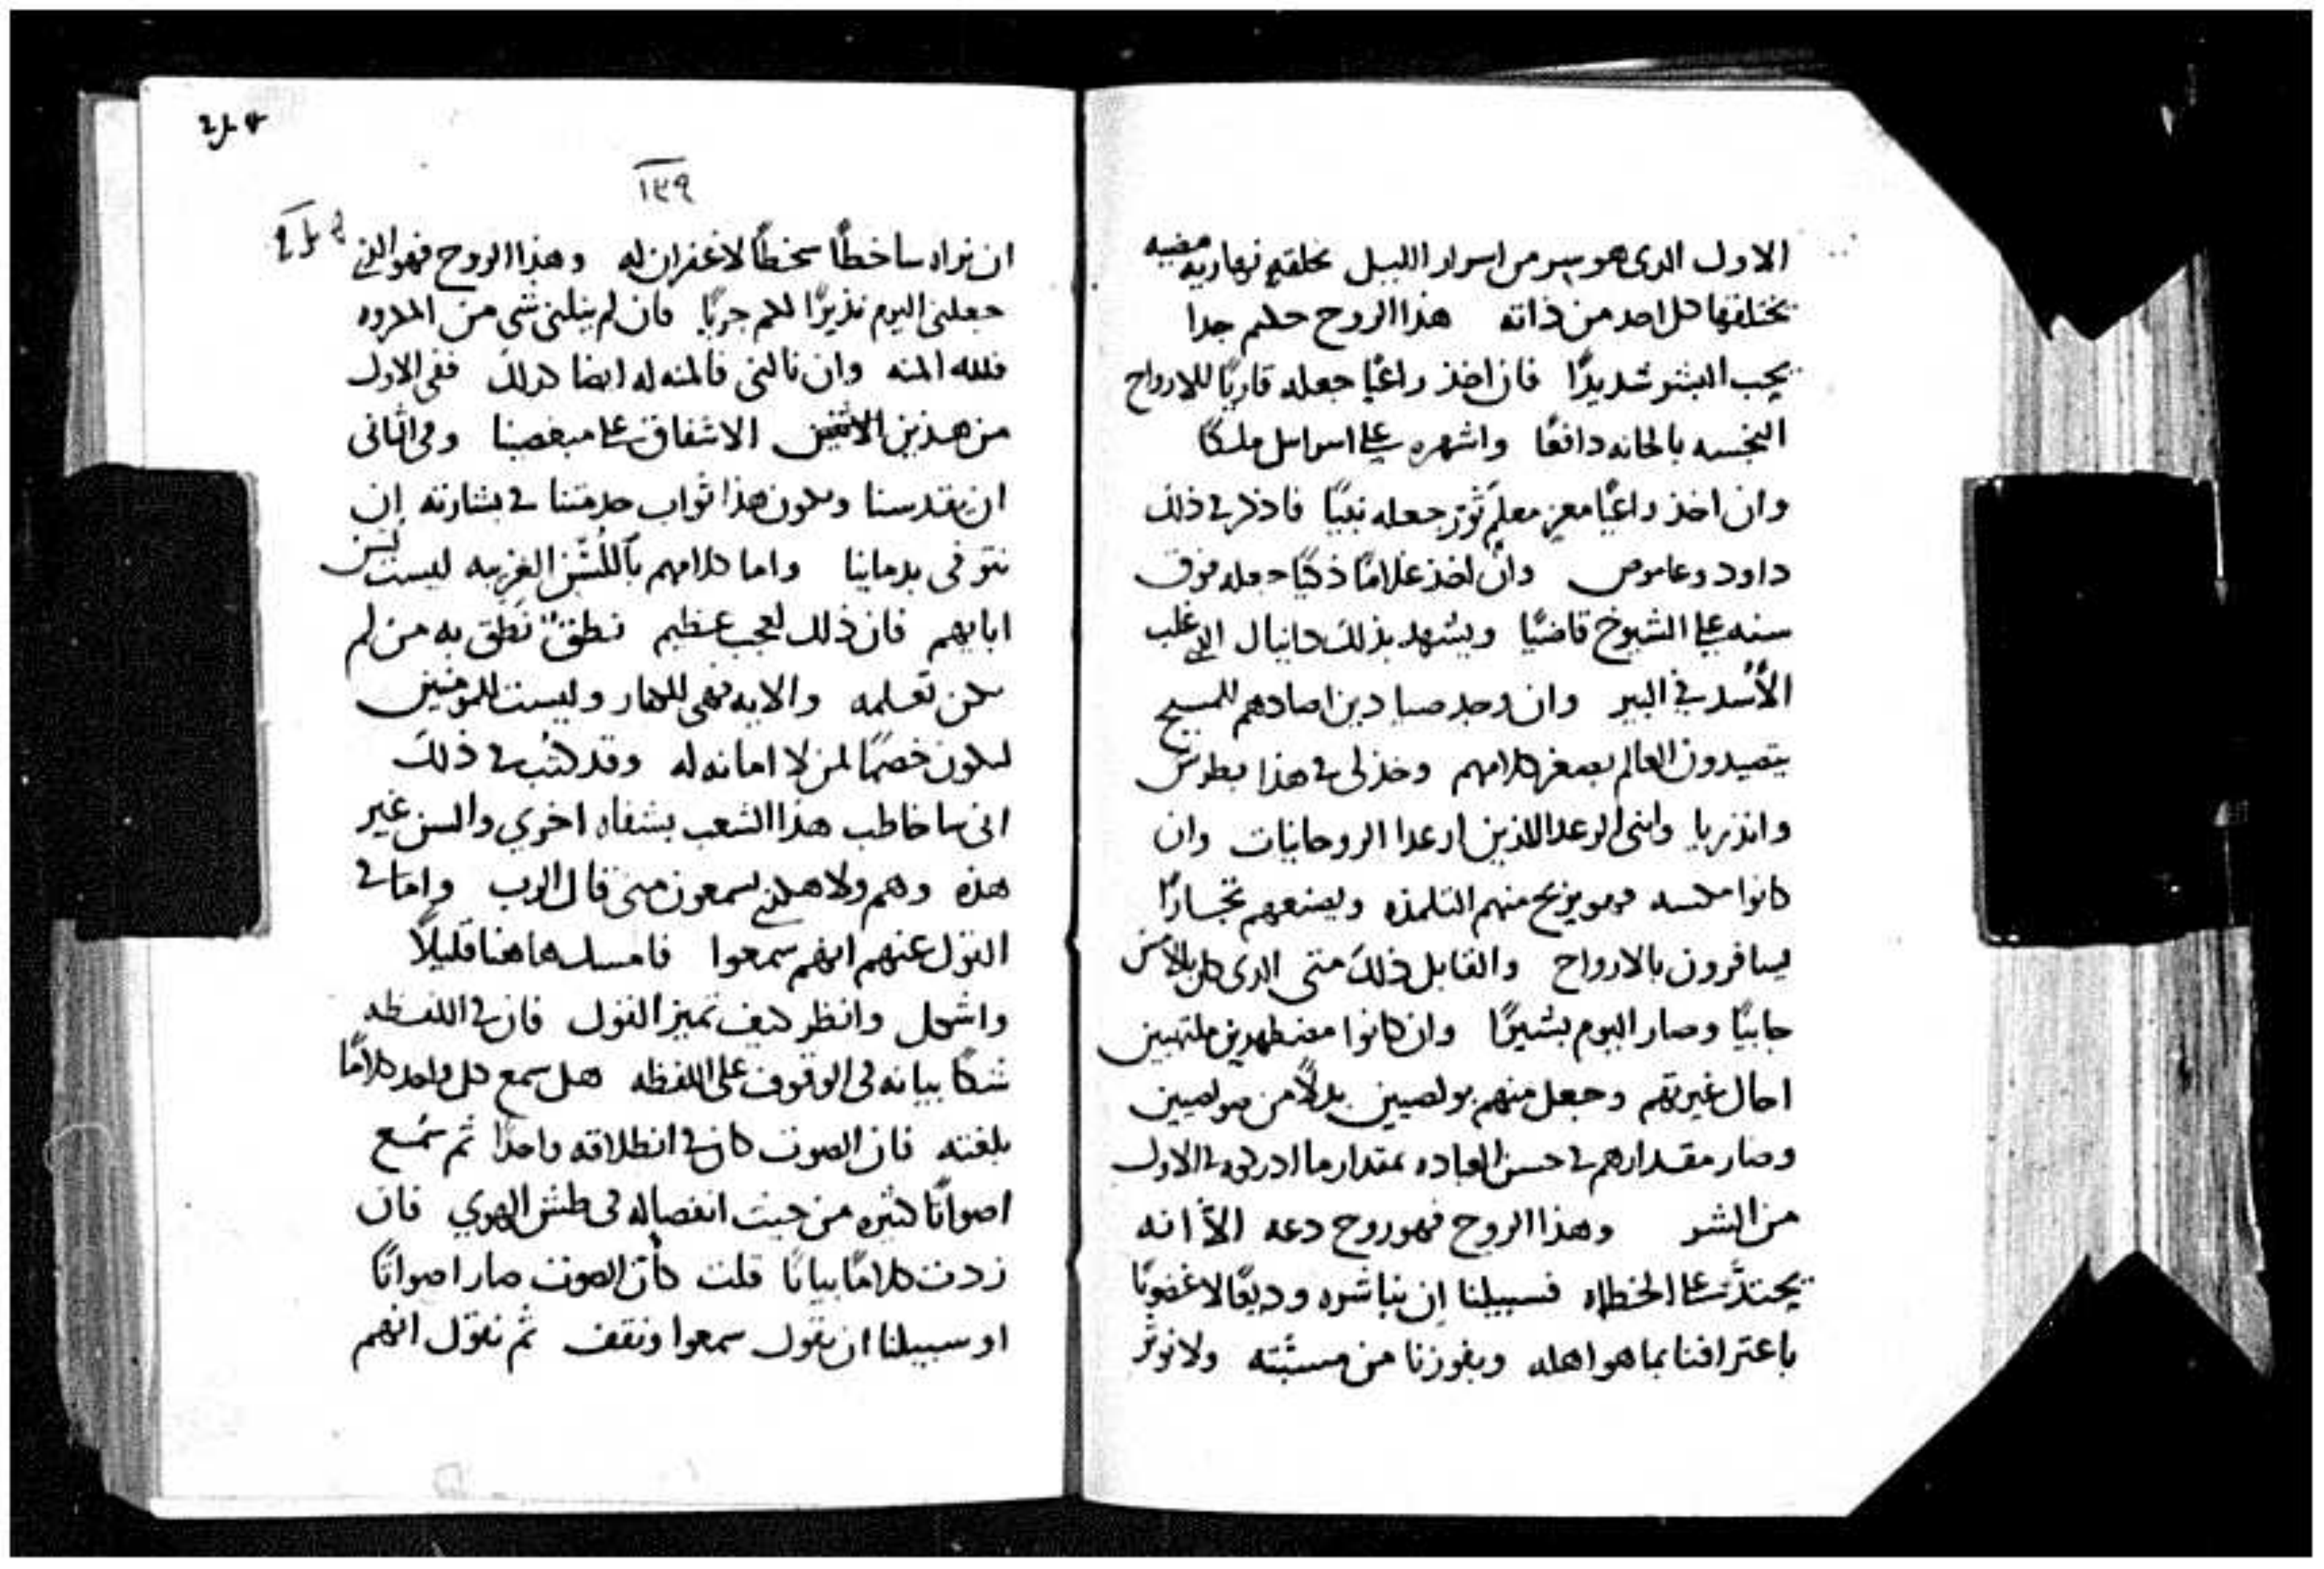 الاول الدى هو سر من اسرار الليل بخلقه نهاريه مضيه
يختلقها كل احد من ذاته هذا الروح حكيم جدا
يحب البشر شديدًا فان اخذ راعيًا جعله قاريًا للارواح
النجسه بالحانه دافعًا واشهره على اسراىل ملكًا
وان اخذ راعيًا معزمعلم توت جعله نبيًا فاذكر فى ذلك
داود وعاموص وان اخذ غلامًا ذكيًا جعله فوق
سنه على الشيوخ قاضيًا ويشهد بذلك دانيال الدى غلب
الأُسُد فى البير وان وجد صيادين اصادهم للمسيح
يتصيدون العالم بصغر كلامهم وخذ لى فى هذا بطرس
واندريا وابنى الرعد اللذين ارعدا الروحانيات وان
كانوا مكسه فهو يربح منهم التلمذه ويصنعهم تجارًا
يسافرون بالارواح والقايل ذلك متى الدى كان بالامس
جابيًا وصار اليوم بشيرًا وان كانوا مضطهدين ملتهبين
احال غيرتهم وجعل منهم بولصيين بدلًا من صولصيين
وصار مقدارهم فى حسن العباده بمقدار ما ادركوه فى الاول
من الشر وهذا الروح فهو روح دعه الّا انه
يحتدّ على الخطاه فسبيلنا ان نباشره وديعًا لا غضوبًا
باعترافنا بما هو اهله وبفوزنا من مسبّته ولا نوثر
١٣٩
ان نراه ساخطًا سخطًا لا غفران له وهذا الروح فهو الذى
جعلنى اليوم نذيرًا لكم جريًا فان لم ينلنى شى من المكروه
فلله المنه وان نالنى فالمنه له ايضا كدلك ففى الاول
من هذين الاثنين الاشفاق على مبغضينا وفى الثانى
ان يقدسنا ويكون هذا ثواب خدمتنا فى بشارته ان
نتوفى بدماينا واما كلامهم بالّلسُن الغريبه ليست لسن
ابايهم فان ذلك لعجب عظيم نطقٌ نطق به من لم
يكن تعلمه والايه فهى للكفار وليست للمومنين
لىكون خصمًا لمن لا امانه له وقد كُتب فى ذلك
انى ساخاطب هذا الشعب بشفاه اخرى والسن غير
هذه وهم ولا هكذى يسمعون منى قال الرب واما فى
القول عنهم انهم سمعوا فامسك هاهنا قليلًا
واشكل وانظر كيف تميز القول فان فى اللفظه
شكًا بيانه فى الوقوف على اللفظه هل سمع كل واحد كلامًا
بلغته فان الصوت كان فى انطلاقه واحدًا ثم سُمع
اصواتًا كثيره من حيث انفصاله فى طش الهوى فان
زدت كلامًا بيانًا قلت كأن الصوت صار اصواتًا
او سبيلنا ان نقول سمعوا ونقف ثم نقول انهم